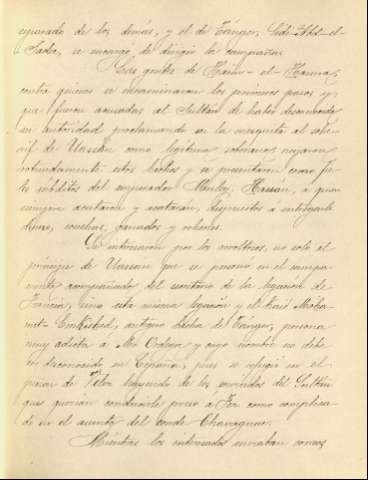 separado de los demás, y el de Tánger, Side-Abd-el-
Sadok, se encargó de dirigir la campaña.
Las gentes de Haim-el-Hamra,
contra quienes se encaminaron los primeros pasos y
que fueron acusadas al Sultán de haber desconocido
su autoridad proclamando en la mezquita al sche-
rif de Uassan como legítimo soberano, negaron
rotundamente estos hechos y se presentaron como fie-
les súbditos del emperador Muley Hassan, á quien
siempre acataron y acatarán, dispuestos á entregarle
cosechas, ganados y
Se interesaron por los revoltosos, no solo el
príncipe de Uassan que se personó en el campa-
mento acompañado del secretario de la legación de
Francia, sino esta misma legación y el Kaid Moha-
mit-Emkished, antiguo bachá de Tánger, persona
muy adicta á Mr. Ordega y cuyo nombre no debe
ser desconocido en España, pues se refugió en el
peñon de Velez huyendo de los enviados del Sultán
que querían conducirle preso á Fez como complica-
do en el asunto del conde Chavagnac.
Mientras los interesados enviaban correos